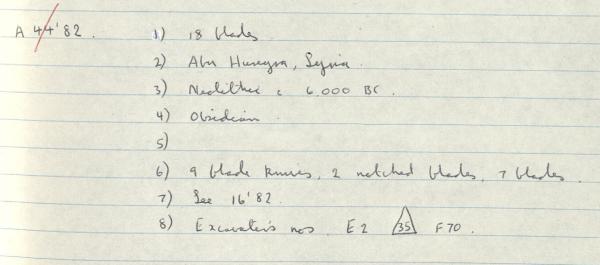 A 44'82. 1) 18 blades
2) Abu Hureyra, Syria.
3) Neolithic c 6.000 BC.
4) Obsidian
5)
6) 9 blade knives, 2 notched blades, 7 blades.
7) See 16'82.
8) Excavation nos E2 35 F70.